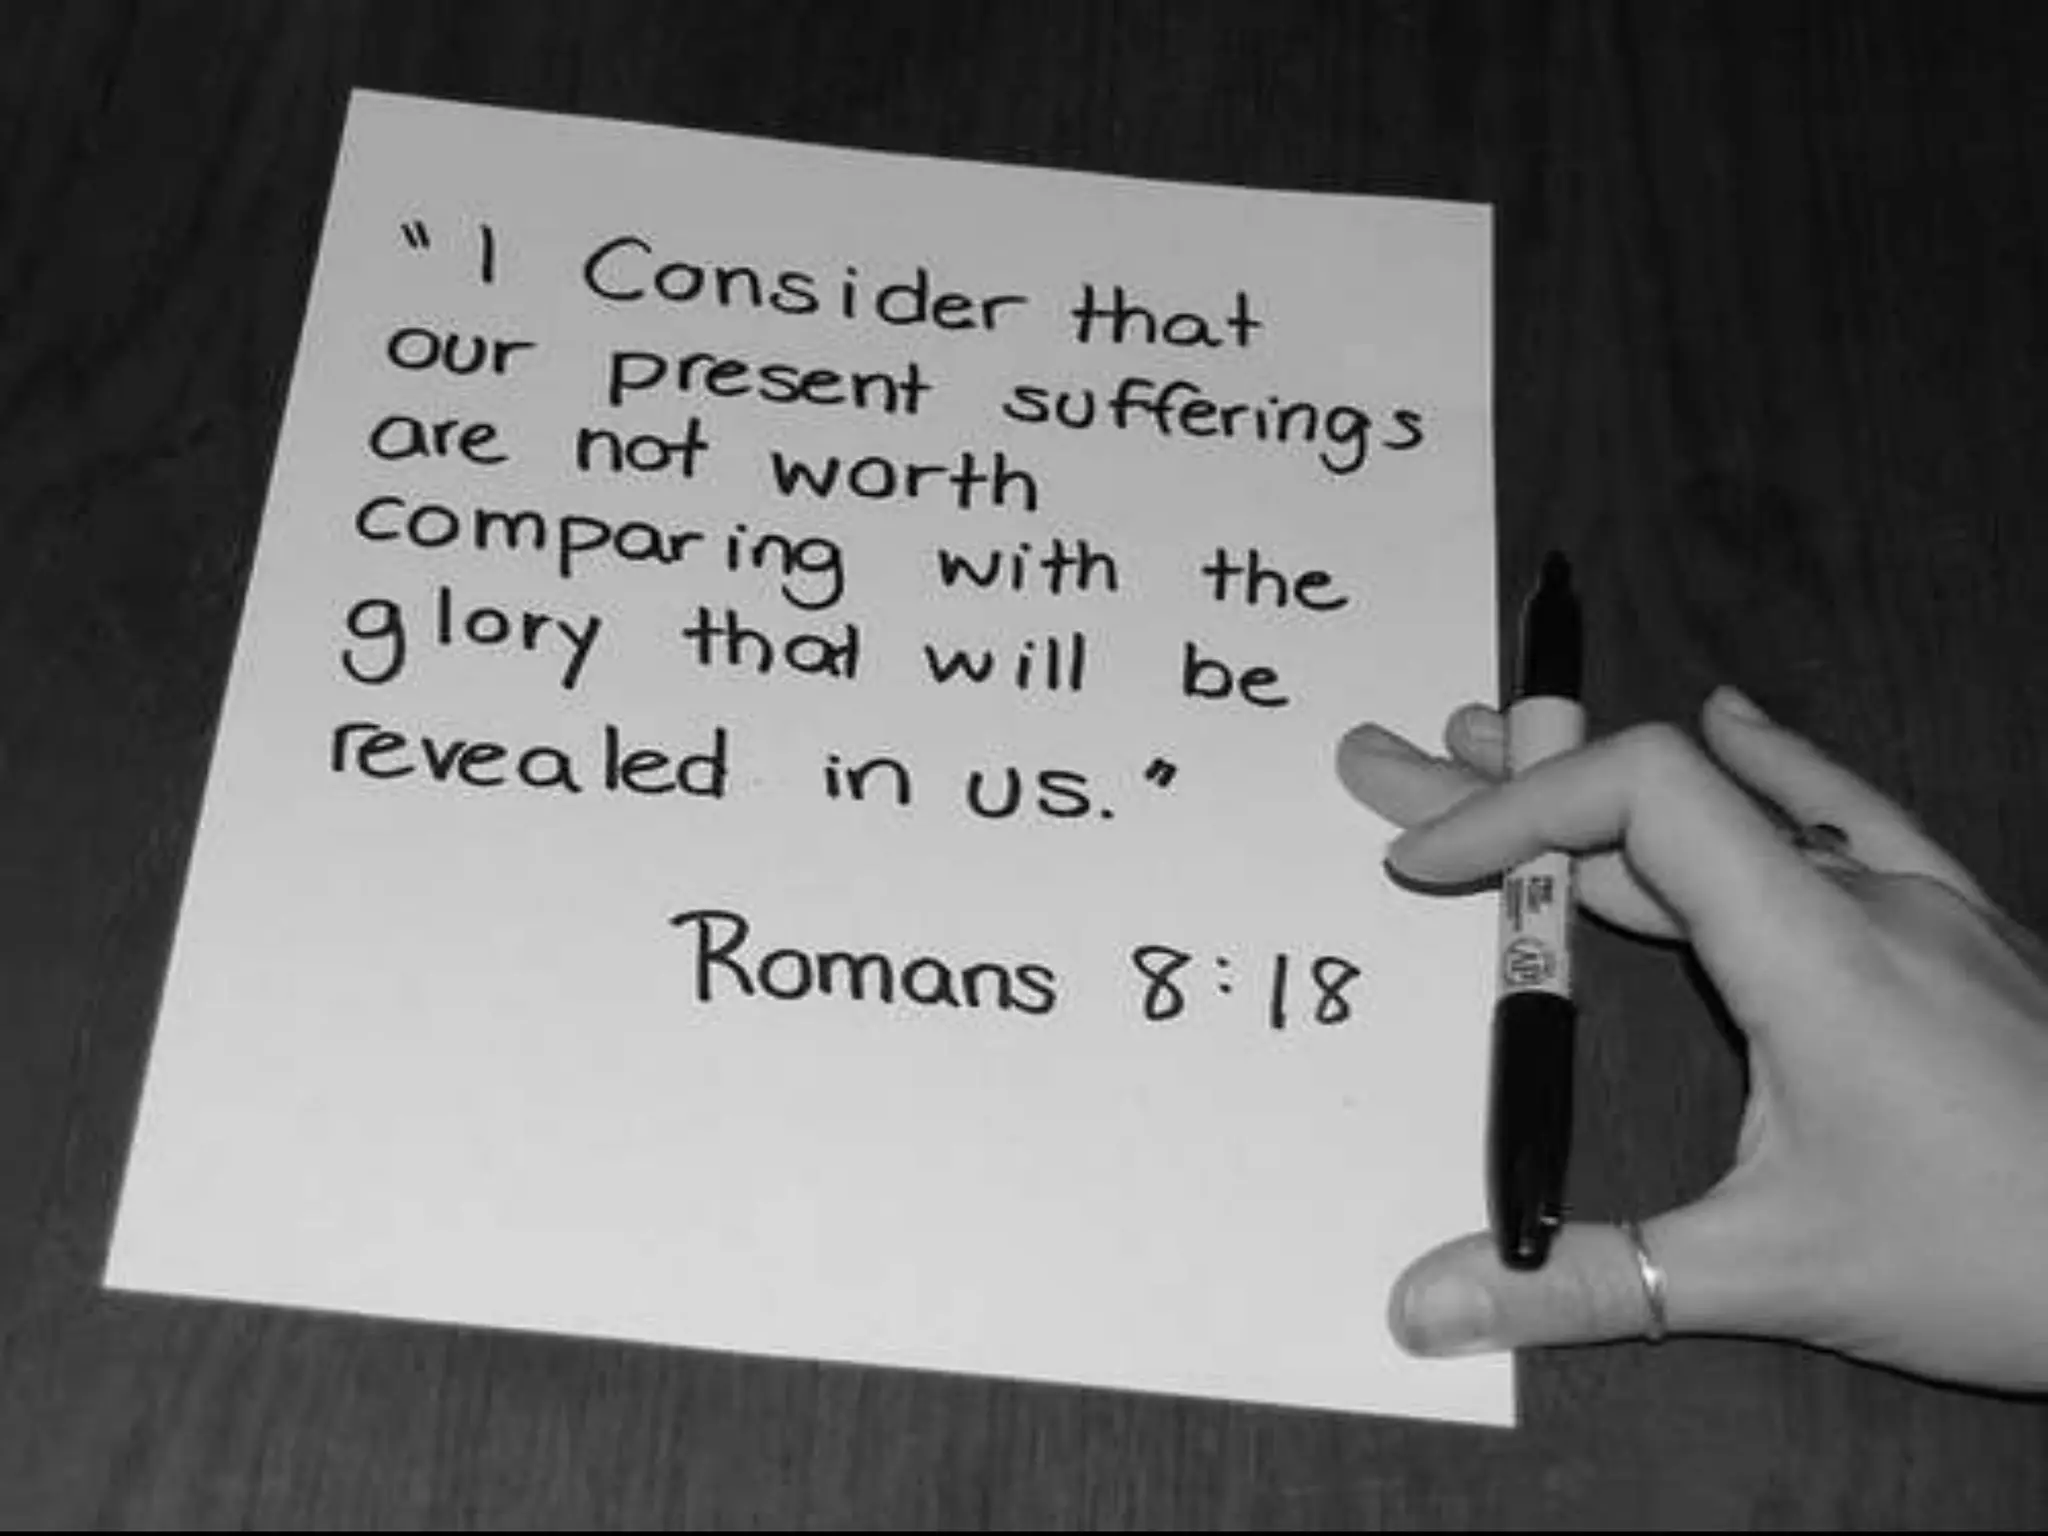 " I Consider that
our present sufferings
are not worth
comparing with the
glory that will be
revealed in us."
Romans 8:18
AP